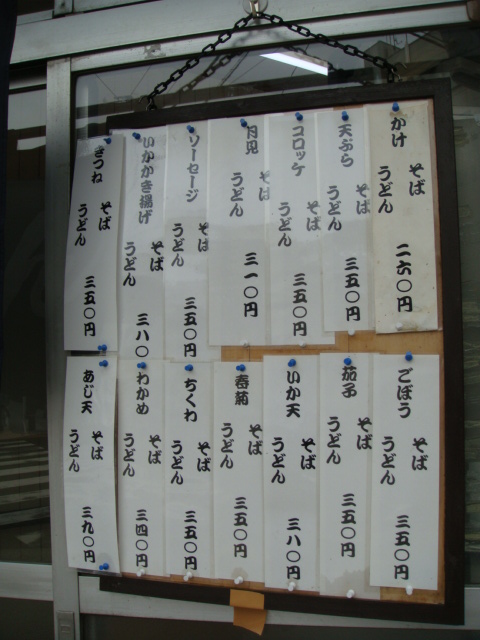 かけ そば うどん 二六〇円
天ぷら そば うどん 三五〇円
コロッケ そば うどん 三五〇円
月見 そば うどん 三一〇円
ソーセージ そば うどん 三五〇円
いかかき揚げ そば うどん 三八〇
きつね そば うどん 三五〇円
ごぼう そば うどん 三五〇円
茄子 そば うどん 三五〇円
いか天 そば うどん 三八〇円
春菊 そば うどん 三五〇円
ちくわ そば うどん 三五〇円
わかめ そば うどん 三四〇円
あじ天 そば うどん 三九〇円